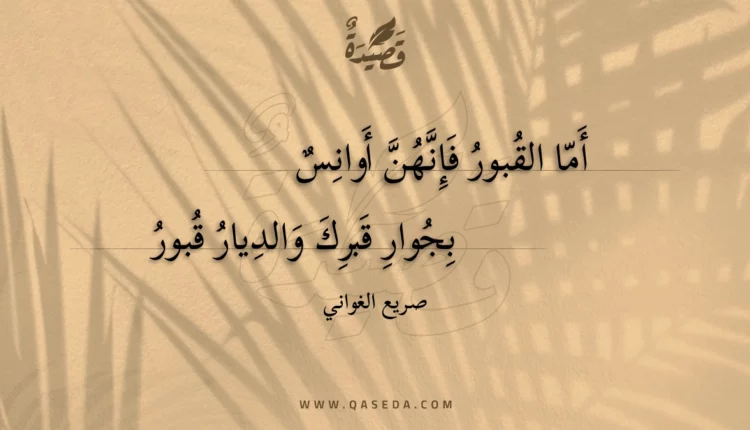 قَصِيْدَةٌ
أَمّا القُبورُ فَإِنَّهُنَّ أَوانِسٌ
بِجُوارِ قَبرِكَ وَالدِيارُ قُبورُ
صريع الغواني
WWW.QASEDA.COM